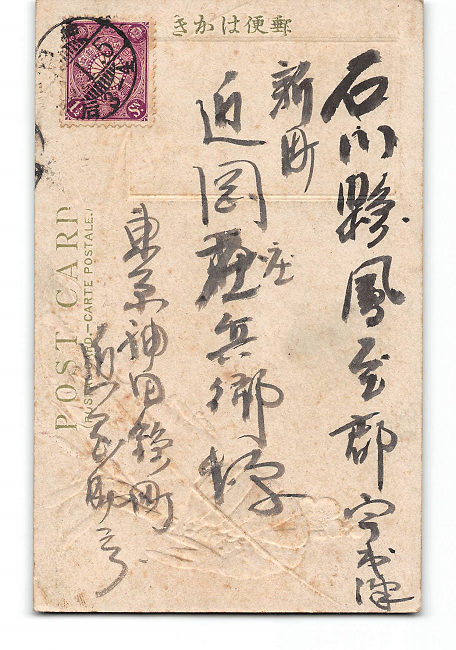 郵便はかき
石川縣鳳至郡宇出津
新町
近岡庄兵衛様
東京神田錦町
POST CARD
(POSTCARD.—CARTE POSTALE.)